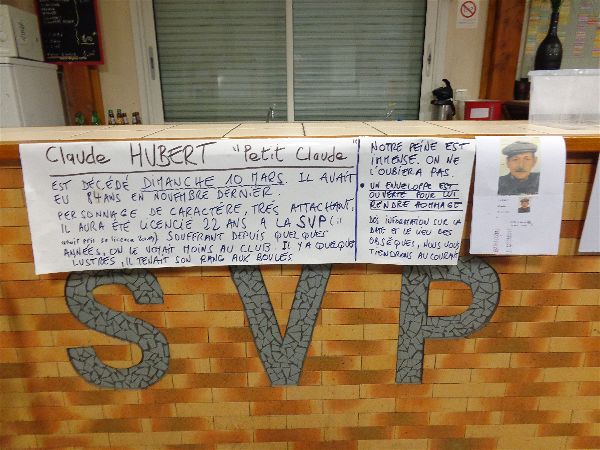 Claude HUBERT "Petit Claude"
EST DÉCÉDÉ DIMANCHE 10 MARS. IL AVAIT
EU 84 ANS EN NOVEMBRE DERNIER
PERSONNAGE DE CARACTÈRE, TRÈS ATTACHANT,
IL AURA ÉTÉ LICENCIÉ 22 ANS A LA SVP (il
avait pris sa licence). SOUFFRANT DEPUIS QUELQUES
ANNÉES, ON LE VOYAIT MOINS AU CLUB. IL Y A QUELQUES
LUSTRES, IL TENAIT SON RANG AUX BOULES
NOTRE PEINE EST
IMMENSE. ON NE
L'OUBIERA PAS.
• UN ENVELOPPE EST
OUVERTE POUR LUI
RENDRE HOMMAGE
DÈS INFORMATION SUR LA
DATE ET LE LIEU DES
OBSÈQUES, NOUS VOUS
TIENDRONS AU COURANT
SVP